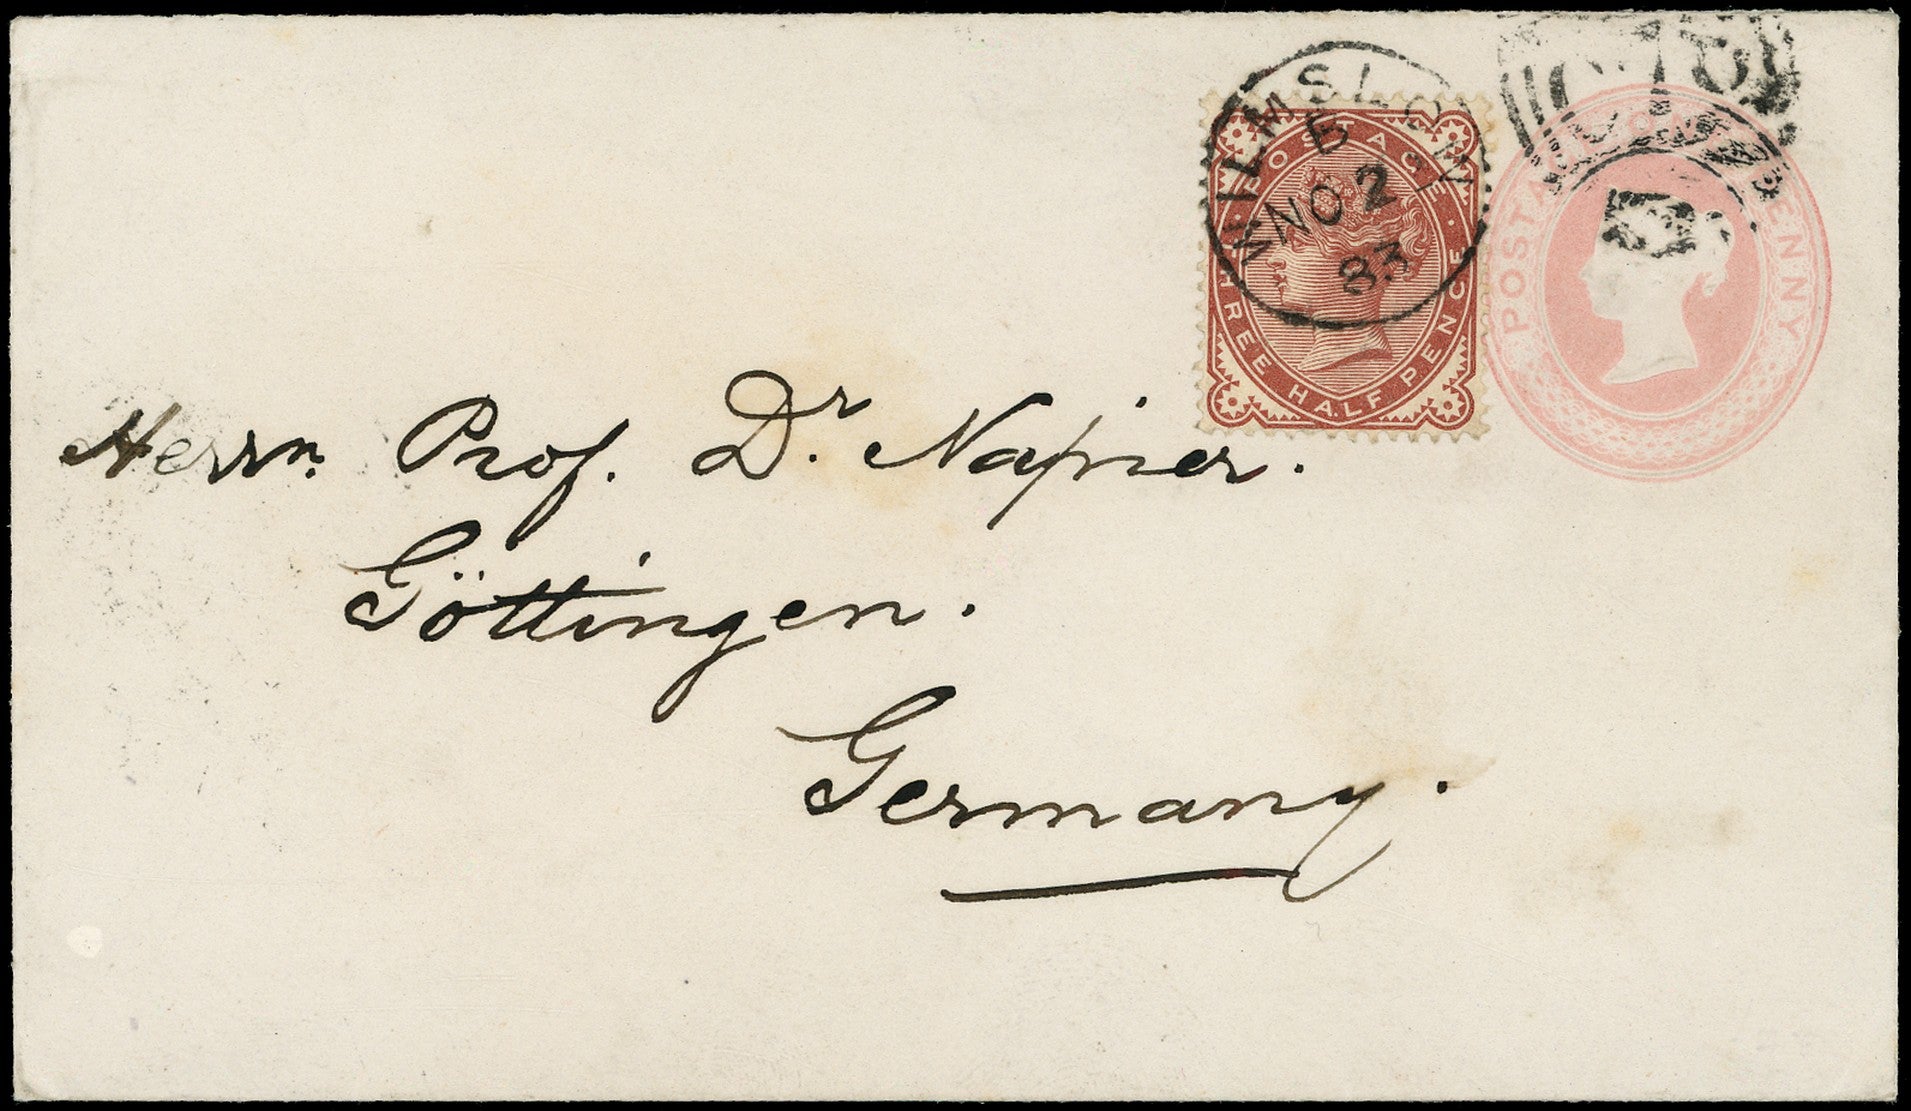 WILMSLOW
B
NO 2
83
POSTAGE
THREE HALF PENCE
POSTAGE ONE PENNY
Herrn Prof. Dr. Napier.
Göttingen.
Germany.